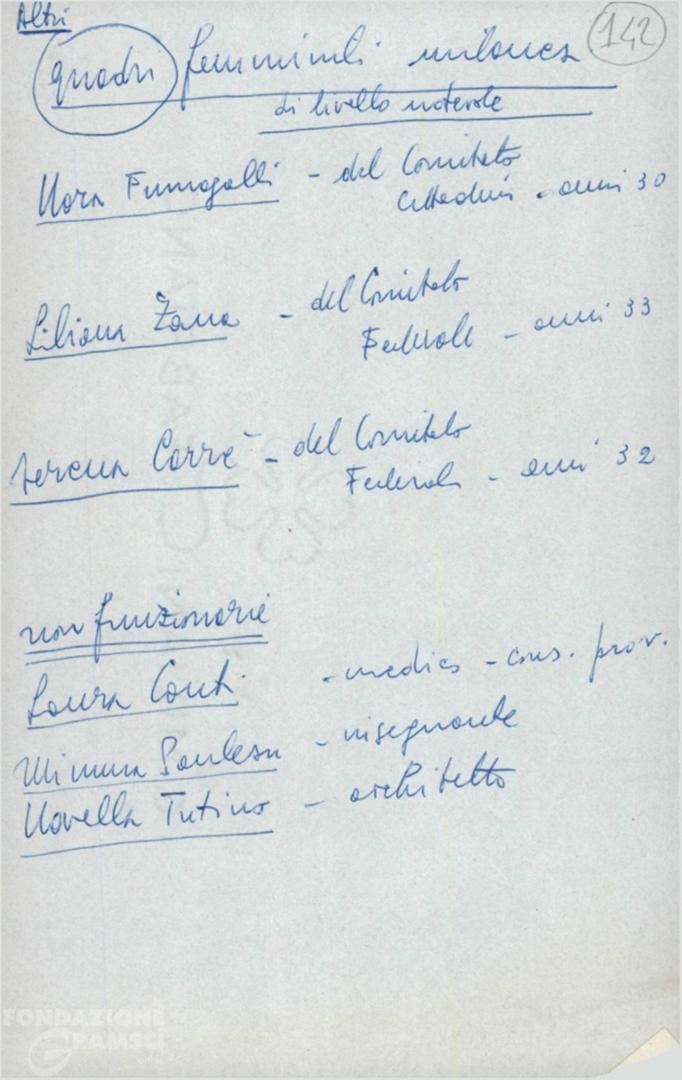 Altri
142
quadri femminili milanesi
di livello notevole
Nora Fumagalli - del Comitato
Cittadino - anni 30
Liliana Zana - del Comitato
Federale - anni 33
Corré - del Comitato
Federale - anni 32
non funzionarie
Laura Conti - medico - cons. prov.
Mimma - insegnante
Novella Tutino - architetto
FONDAZIONE
GRAMSCI